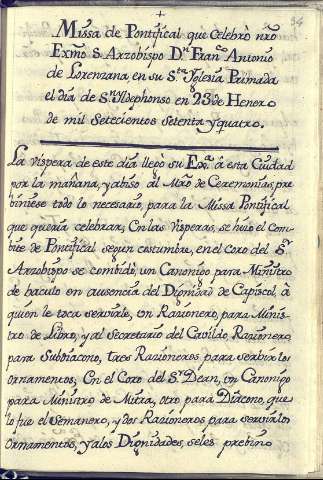 +
94
Missa de Pontifical que Celebrò nrõ
Exmõ S. Arzobispo Dn. Franco Antonio
de Lorenzana en su Sta Yglesia Primada
el dia de Sn. Yldephonso en 23 de Henero
de mil Setecientos Setenta y quatro.
La vispera de este dia llegò su Exa. â esta Ciudad
por la mañana, y abisò al Mtro de Ceremonias, pre
biniese todo lo necesario, para la Missa Pontifical
que queria celebrar; En las Visperas, se hizo el com-
bite de Pontifical segun costumbre, en el coro del Sr.
Arzobispo se combidò, un Canonigo para Ministro
de baculo en ausencia del Dignidad de Capiscol, â
quien le toca servirle, un Razionero, para Minis-
tro de Libro, y al Secretario del Cavildo, Razionero,
para Subdiacono, tres Razioneros para serbir los
ornamentos; En el Coro del Sr. Dean, un Canonigo
para Ministro de Mitra, otro para Diacono, que
lo fue el Semanero, y dos Razioneros para servir los
Ornamentos, y a los Dignidades, se les prebino